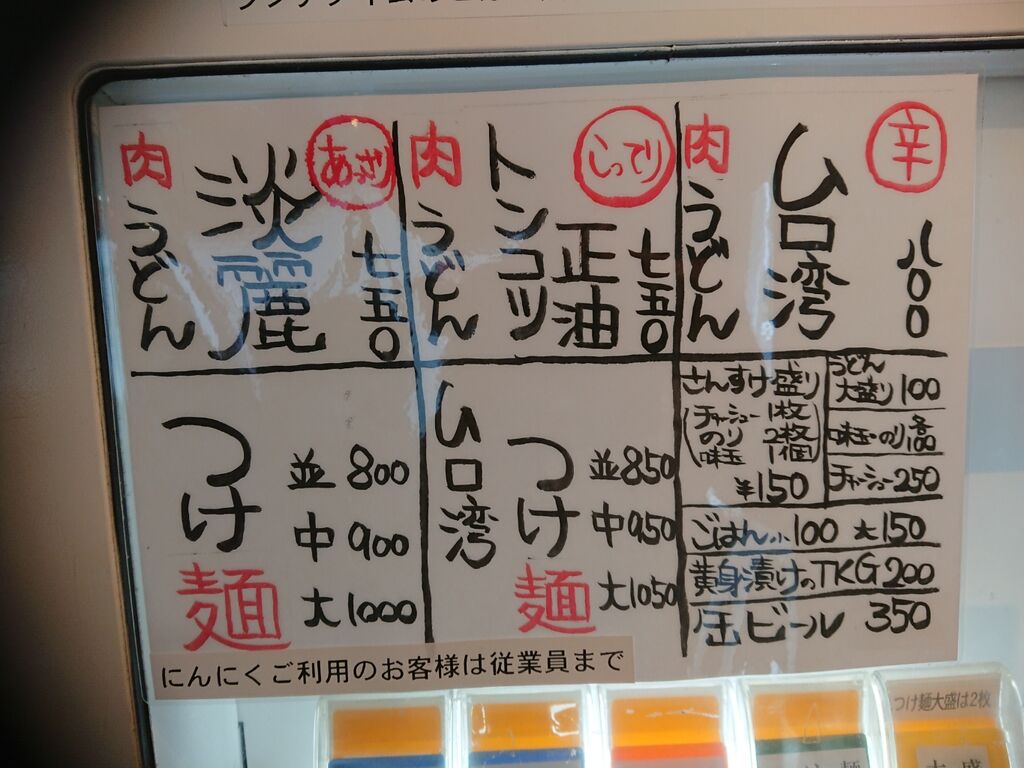 あっさり
肉うどん
淡麗
七五〇
こってり
肉うどん
トンコツ
正油
七五〇
辛
肉うどん
台湾
八〇〇
つけ麺
並800
中900
大1000
台湾
つけ麺
並850
中950
大1050
さんすけ盛り
チャーシュー 1枚
のり 2枚
味玉 1個
¥150
うどん
大盛り 100
味玉・のり 各100
チャーシュー 250
ごはん小100 大150
黄身漬けのTKG200
缶ビール 350
にんにくご利用のお客様は従業員まで
つけ麺大盛は2枚
大盛